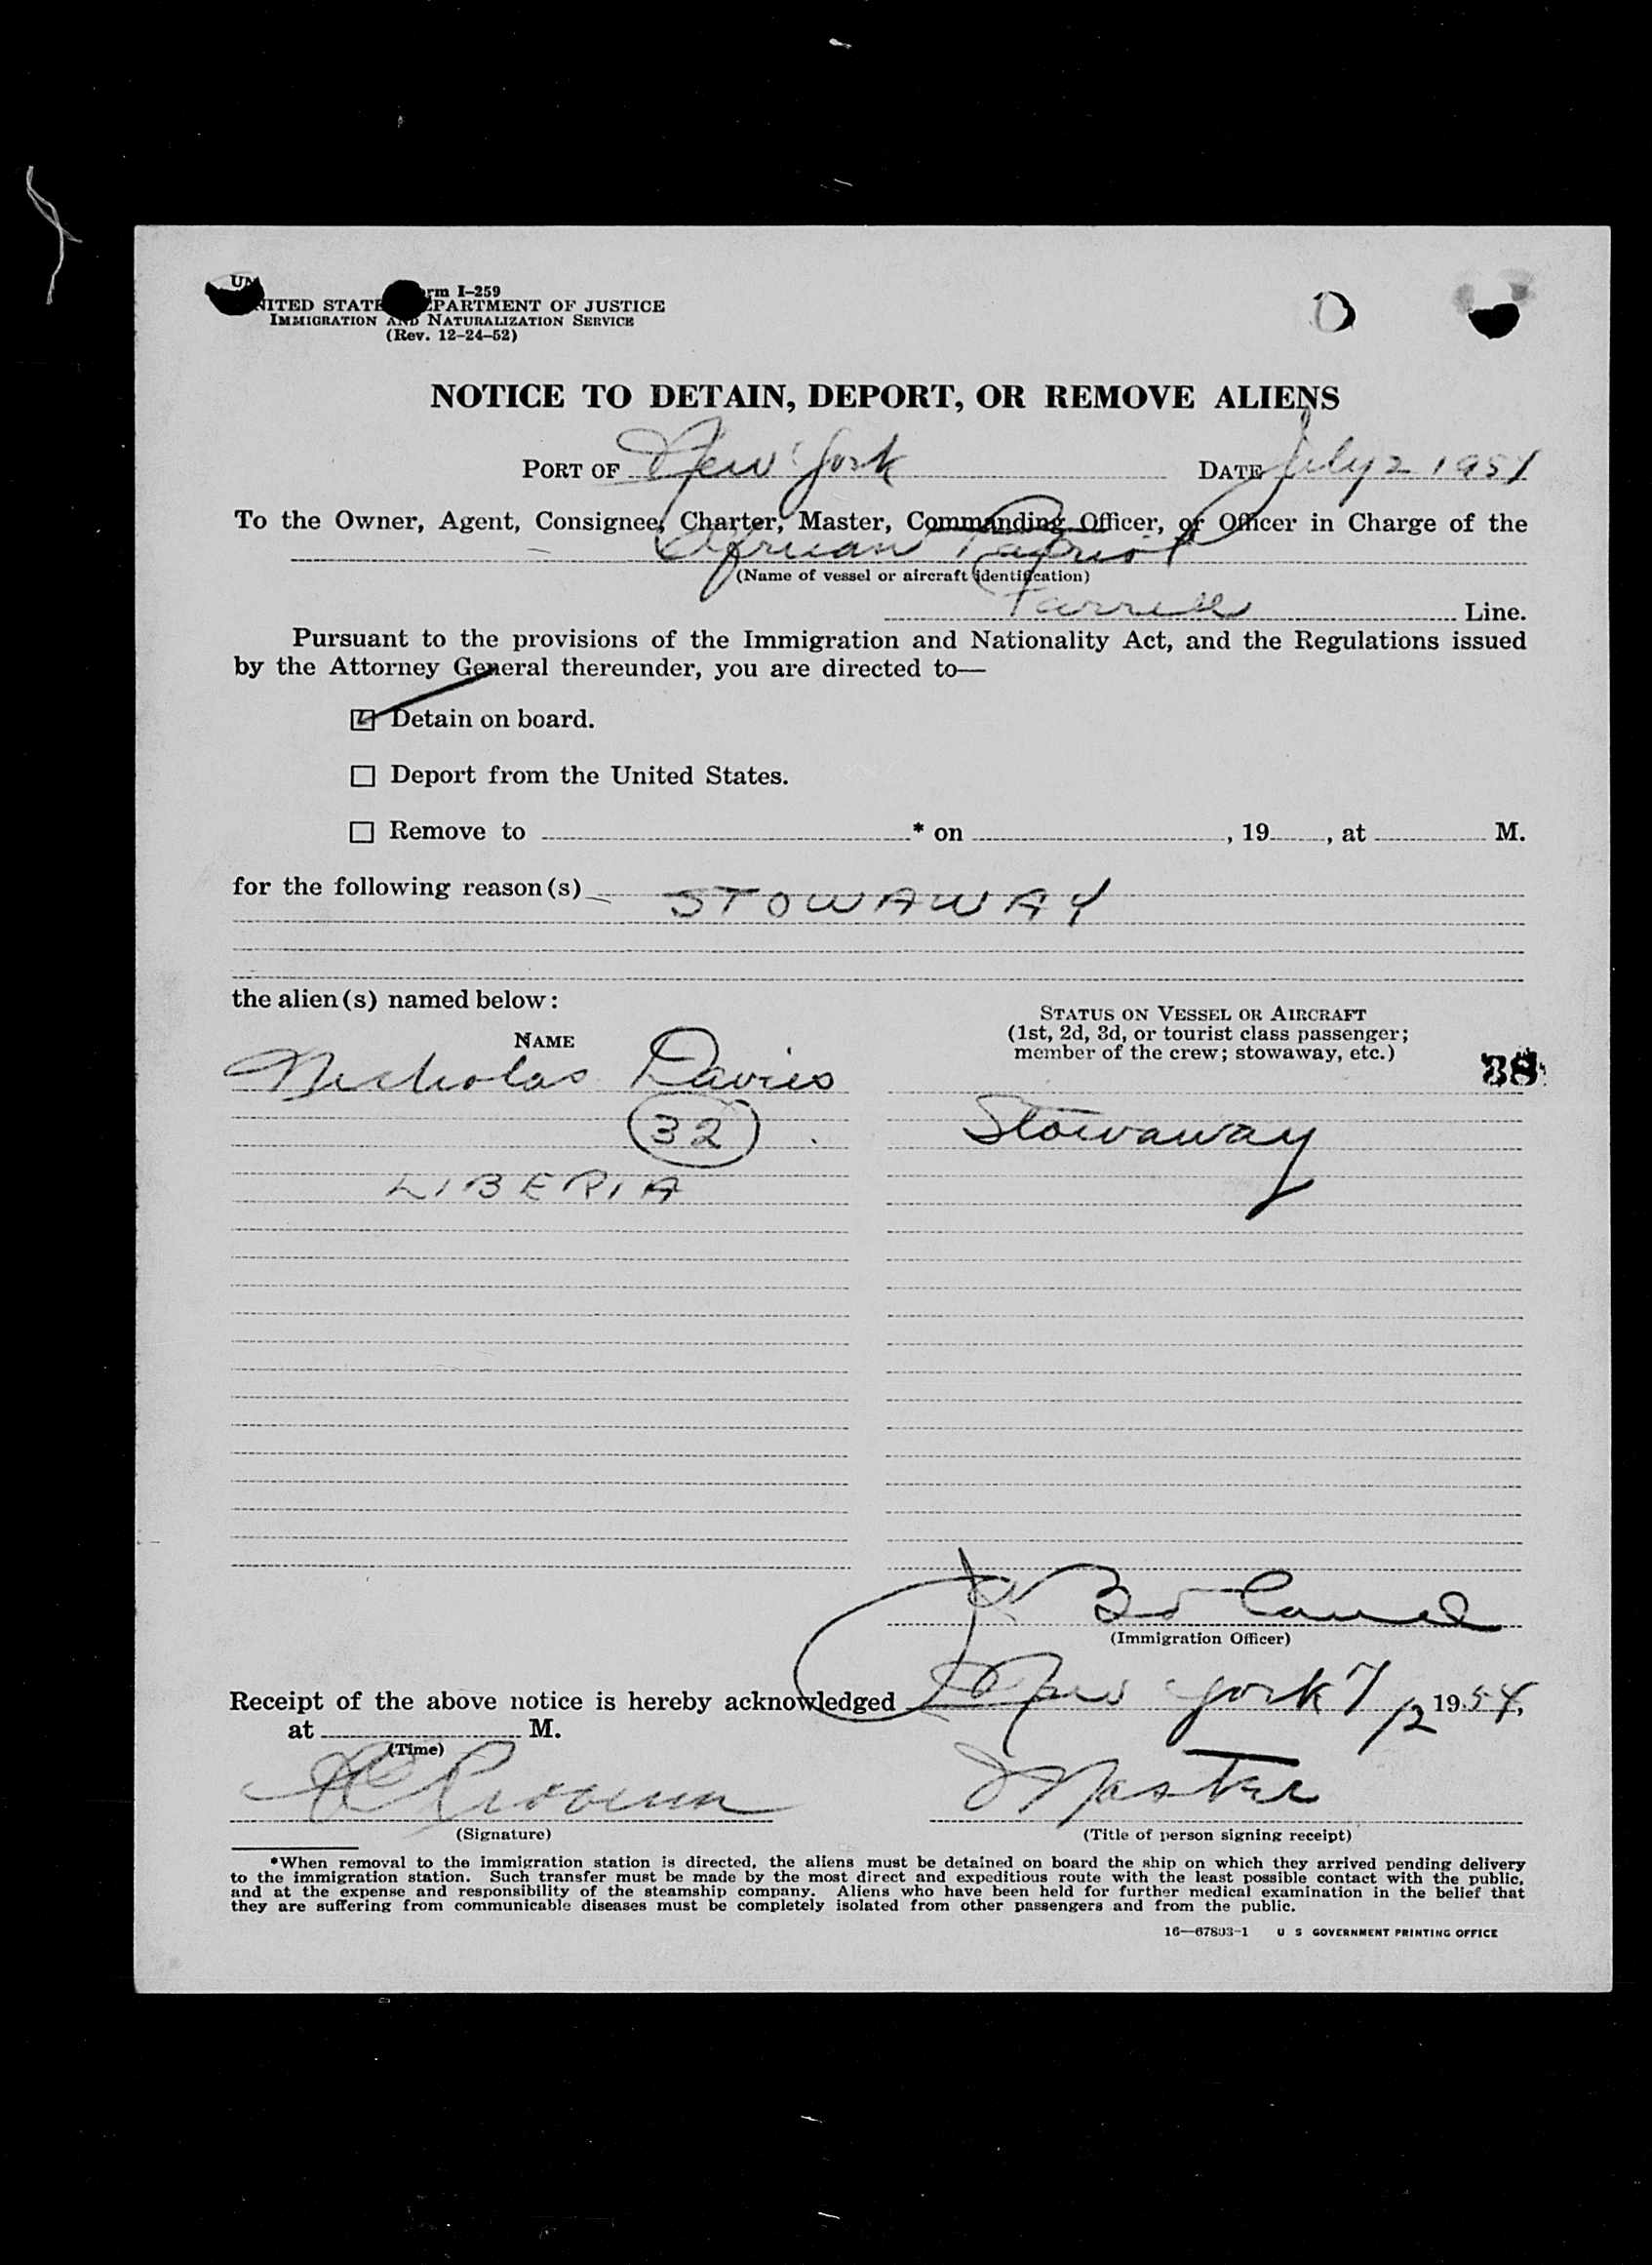 Form I-259
UNITED STATES DEPARTMENT OF JUSTICE
IMMIGRATION AND NATURALIZATION SERVICE
(Rev. 12-24-52)
NOTICE TO DETAIN, DEPORT, OR REMOVE ALIENS
PORT OF New York DATE July 2 1954
To the Owner, Agent, Consignee, Charter, Master, Commanding Officer, or Officer in Charge of the
African Patriot
(Name of vessel or aircraft identification)
Farrell Line.
Pursuant to the provisions of the Immigration and Nationality Act, and the Regulations issued
by the Attorney General thereunder, you are directed to—
Detain on board.
Deport from the United States.
Remove to * on , 19 , at M.
for the following reason(s) STOWAWAY
the alien(s) named below:
NAME
STATUS ON VESSEL OR AIRCRAFT
(1st, 2d, 3d, or tourist class passenger;
member of the crew; stowaway, etc.)
38
Nicholas Davies
32
Stowaway
LIBERIA
(Immigration Officer)
Receipt of the above notice is hereby acknowledged New York 7/2 1954,
at M.
(Time)
Master
(Signature)
(Title of person signing receipt)
*When removal to the immigration station is directed, the aliens must be detained on board the ship on which they arrived pending delivery
to the immigration station. Such transfer must be made by the most direct and expeditious route with the least possible contact with the public,
and at the expense and responsibility of the steamship company. Aliens who have been held for further medical examination in the belief that
they are suffering from communicable diseases must be completely isolated from other passengers and from the public.
16—67803-1 U S GOVERNMENT PRINTING OFFICE